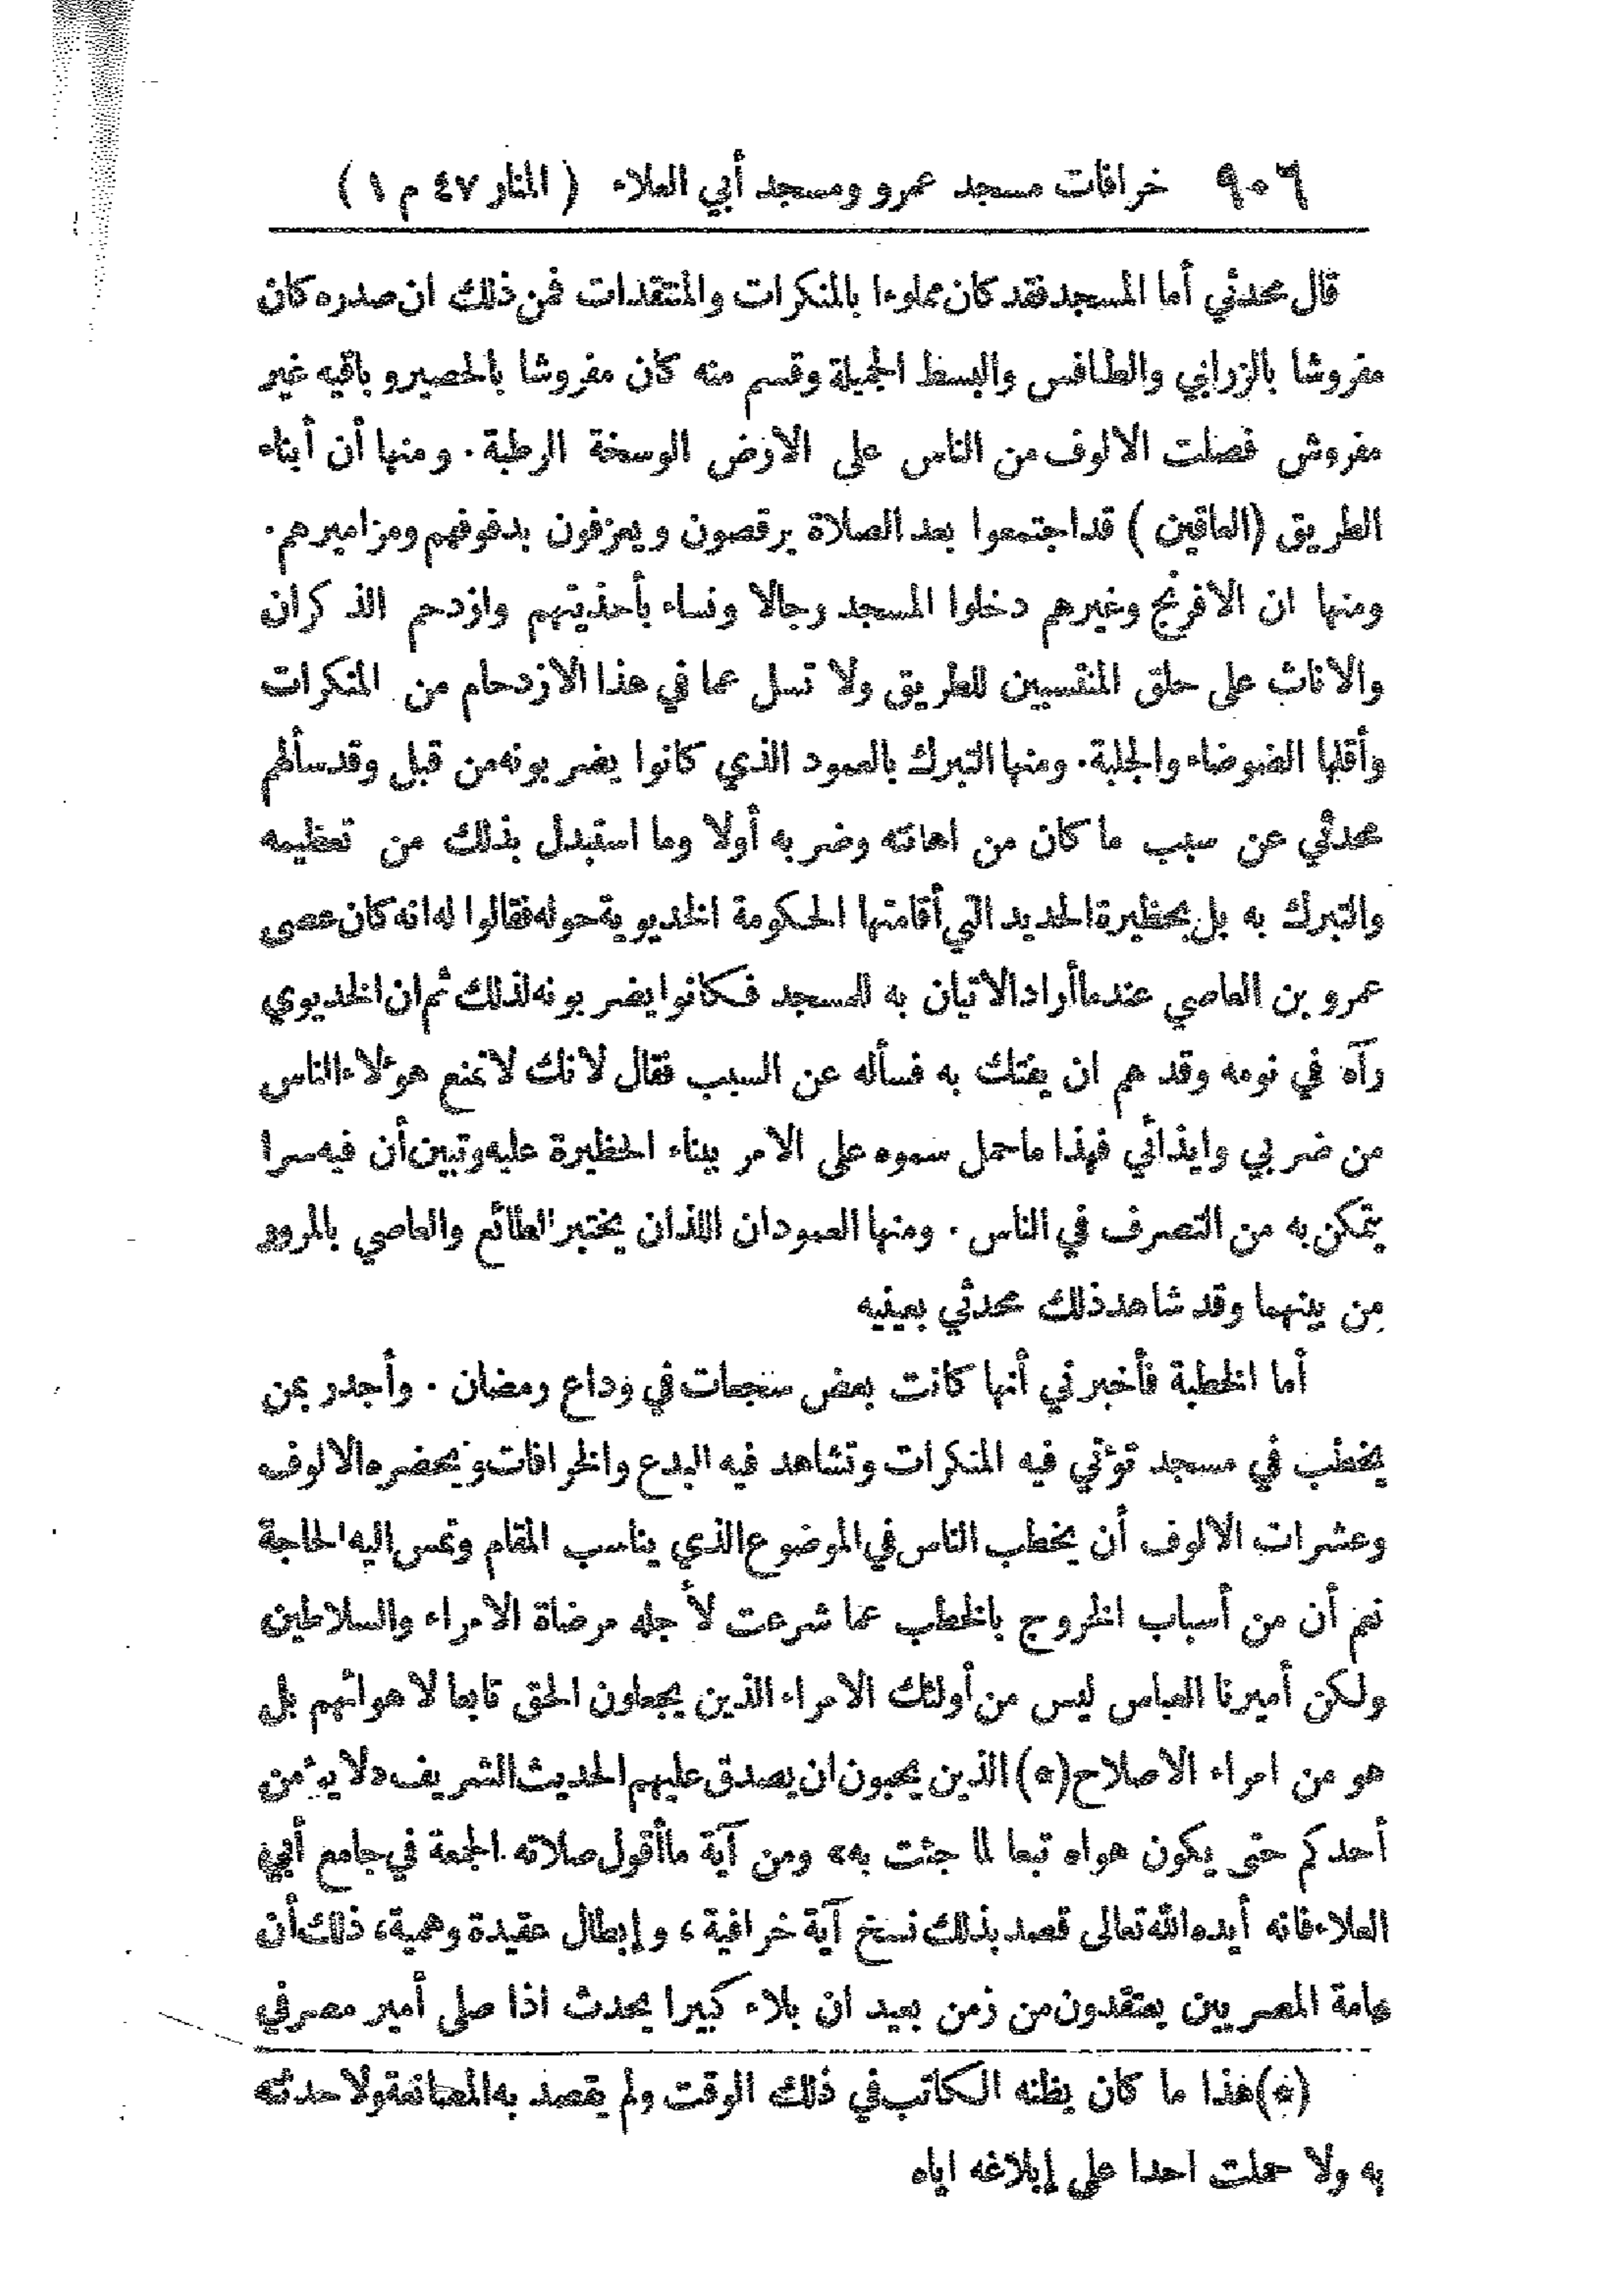 ٩٠٦ خرافات مسجد عمرو ومسجد أبي العلاء ( المنار ٤٧ م ١ )
قال محدثي أما المسجد فقد كان مملوءا بالمنكرات والمنتقدات فمن ذلك ان صدره كان
مفروشا بالزرابي والطنافس والبسط الجميلة وقسم منه كان مفروشا بالحصير وباقيه غير
مفروش فصلت الالوف من الناس على الارض الوسخة الرطبة . ومنها أن أبناء
الطريق (العاقين ) قد اجتمعوا بعد الصلاة يرقصون ويعزفون بدفوفهم ومزاميرهم .
ومنها ان الافرنج وغيرهم دخلوا المسجد رجالا ونساء بأحذيتهم وازدحم الذكران
والاناث على حلق المنتسبين للطريق ولا تسل عما في هذا الازدحام من المنكرات
وأقلها الضوضاء والجلبة . ومنها التبرك بالعمود الذي كانوا يضربونه من قبل وقد سألهم
محدثي عن سبب ما كان من اهانته وضربه أولا وما استبدل بذلك من تعظيمه
والتبرك به بل بحظيرة الحديد التي أقامتها الحكومة الخديوية حوله فقالوا له انه كان عصى
عمرو بن العاصي عندما أراد الاتيان به للمسجد فكانوا يضربونه لذلك ثم ان الخديوي
رآه في نومه وقد هم ان يفتك به فسأله عن السبب فقال لانك لا تمنع هؤلاء الناس
من ضربي وايذائي فهذا ما حمل سموه على الامر ببناء الحظيرة عليه وتبين أن فيه سرا
يتمكن به من التصرف في الناس . ومنها العمودان اللذان يختبر الطائع والعاصي بالمرور
من بينهما وقد شاهد ذلك محدثي بعينيه
أما الخطبة فأخبرني أنها كانت بعض سجعات في وداع رمضان . وأجدر بمن
يخطب في مسجد تؤتي فيه المنكرات وتشاهد فيه البدع والخرافات ويحضره الالوف
وعشرات الالوف أن يخطب الناس في الموضوع الذي يناسب المقام وتمس اليه الحاجة
نعم أن من أسباب الخروج بالخطب عما شرعت لأجله مرضاة الامراء والسلاطين
ولكن أميرنا العباس ليس من أولئك الامراء الذين يجعلون الحق تابعا لاهوائهم بل
هو من امراء الاصلاح(*) الذين يحبون ان يصدق عليهم الحديث الشريف «لا يؤمن
أحدكم حتى يكون هواه تبعا لما جئت به» ومن آية ما أقول صلاته الجمعة في جامع أبي
العلاء فانه أيده الله تعالى قصد بذلك نسخ آية خرافية ، وإبطال عقيدة وهمية، ذلك أن
عامة المصريين يعتقدون من زمن بعيد ان بلاء كبيرا يحدث اذا صلى أمير مصر في
(*) هذا ما كان يظنه الكاتب في ذلك الوقت ولم يقصد به المصانعة ولا حدثته
به ولا حملت احدا على إبلاغه اياه